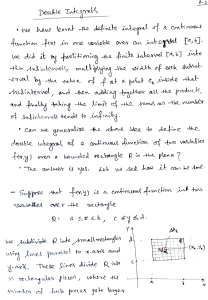 P-1
Double Integrals
• We have learnt the definite integral of a continuous
function f(x) in one variable over an interval [a,b].
we did it by partitioning the finite interval [a,b] into
thin subintervals, multiplying the width of each subint-
erval by the value of f at a point inside that
subinterval, and then adding together all the products,
and finally taking the limit of the sums as the number
of subintervals tends to infinity.
• Can we generalize the above idea to define the
double integral of a continuous function of two variables
f(x,y) over a bounded rectangle R in the plane?
• The answer is yes. Let us see how it can be done.
- Suppose that f(x,y) is a continuous function in two
variables over the rectangle
R: a ≤ x ≤ b, c ≤ y ≤ d.
We subdivide R into small rectangles
using lines parallel to x-axis and
y-axis. These lines divide R into
n rectangular pieces, where the
number of such pieces gets larger
y
d
R
c